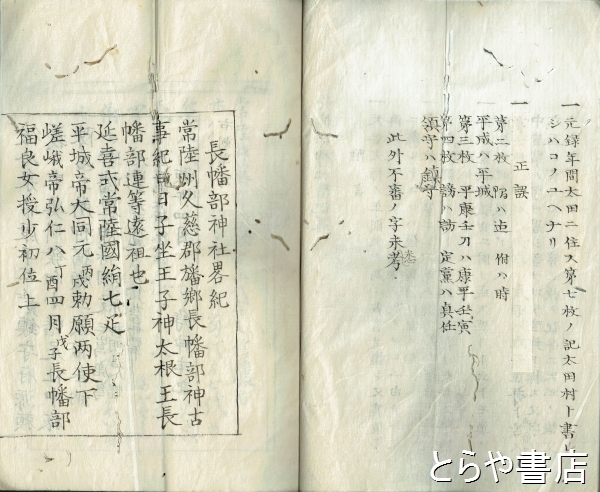 一元録年間太田ニ住ス第七枚ノ記太田村ト書シ
シハコノユヘナリ
一　正誤
第二枚　ハ迚　附ハ時
平成ハ平城
第三枚　平康壬刀ハ康平壬寅
第四枚　謗ハ訪　定薫ハ真任
領守ハ鎮守
此外不審ノ字未考
長幡部神社畧紀
常陸州久慈郡旛郷長幡部神古
事紀曰日子坐王子神太根王長
幡部連等遠祖也
延喜式常陸國絹七疋
平城帝大同元丙戌勅願两使下
嵯峨帝弘仁八丁酉四月戊子長幡部
福良女授少初位上
とらや書店